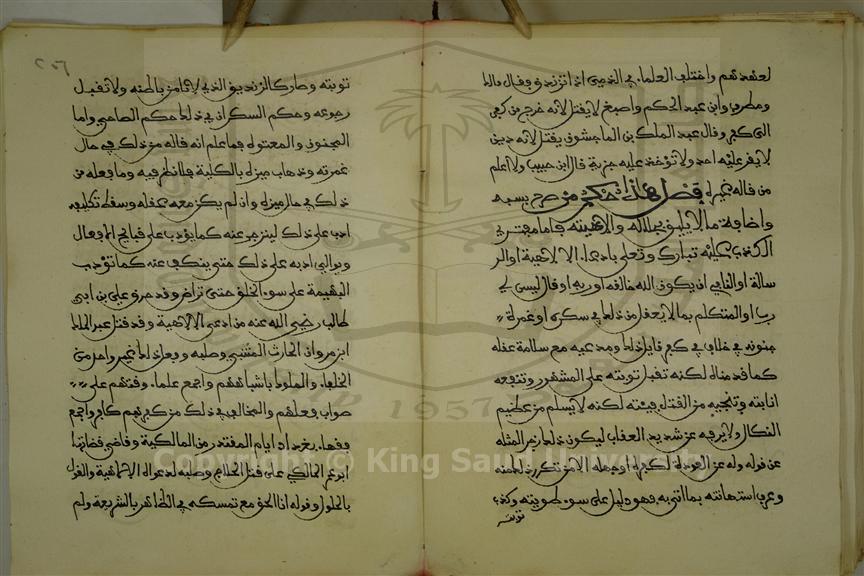 لعهدهم واختلف العلماء في الذمي اذا تزندق فقال مالك
ومطرف وابن عبد الحكم واصبغ لا يقتل لانه خرج من كفر
الى كفر وقال عبد الملك بن الماجشون يقتل لانه دين
لا يقر عليه احد ولا تؤخذ عليه جزية قال ابن حبيب ولا اعلم
من قاله غيره فصل هذا حكم من صرح بسبه
واضافة ما لا يليق بجلاله والاهيته فاما مفترى
الكذب عليه تبارك وتعلى بادعاء الالاهية او الر
سالة او النافي ان يكون الله خالقه او ربه او قال ليس لي
رب او المتكلم بما لا يعقل من ذلك في سكره او غمرة
جنونه فلا خلاف في كفر قايل ذلك ومدعيه مع سلامة عقله
كما قدمناه لكنه تقبل توبته على المشهور وتنفعه
انابته وتنجيه من القتل فيئته لكنه لا يسلم من عظيم
النكال ولا يرفه عن شديد العقاب ليكون ذلك زجرا لمثله
عن قوله وله عن العودة لكفره او جهله الا من تكرر ذلك منه
وعرف استهانته بما اتى به فهو دليل على سوء طويته وكذب
توبته
توبته وصار كالزنديق الذي لا نامن باطنه ولا نقبل
رجوعه وحكم السكران في ذلك حكم الصاحي واما
المجنون والمعتوه فما علم انه قاله من ذلك في حال
غمرته وذهاب ميزه بالكلية فلا نظر فيه وما فعله من
ذلك في حال ميزه وان لم يكن معه عقله وسقط تكليفه
ادب على ذلك لينزجر عنه كما يؤدب على قبايح الافعال
ويوالى ادبه على ذلك حتى ينكف عنه كما تؤدب
البهيمة على سوء الخلق حتى تراض وقد حرق علي بن ابي
طالب رضي الله عنه من ادعى الالاهية وقد قتل عبد الملك
ابن مروان الحارث المتنبي وصلبه وفعل ذلك غير واحد من
الخلفاء والملوك باشباههم واجمع علماء وقتهم على
صواب فعلهم والمخالف في ذلك من كفرهم كافر واجمع
فقهاء بغداد ايام المقتدر من المالكية وقاضي قضاتها
ابو عمر المالكي على قتل الحلاج وصلبه لدعواه الالاهية والقول
بالحلول وقوله انا الحق مع تمسكه في الظاهر بالشريعة ولم
Copyright © King Saud University
1957